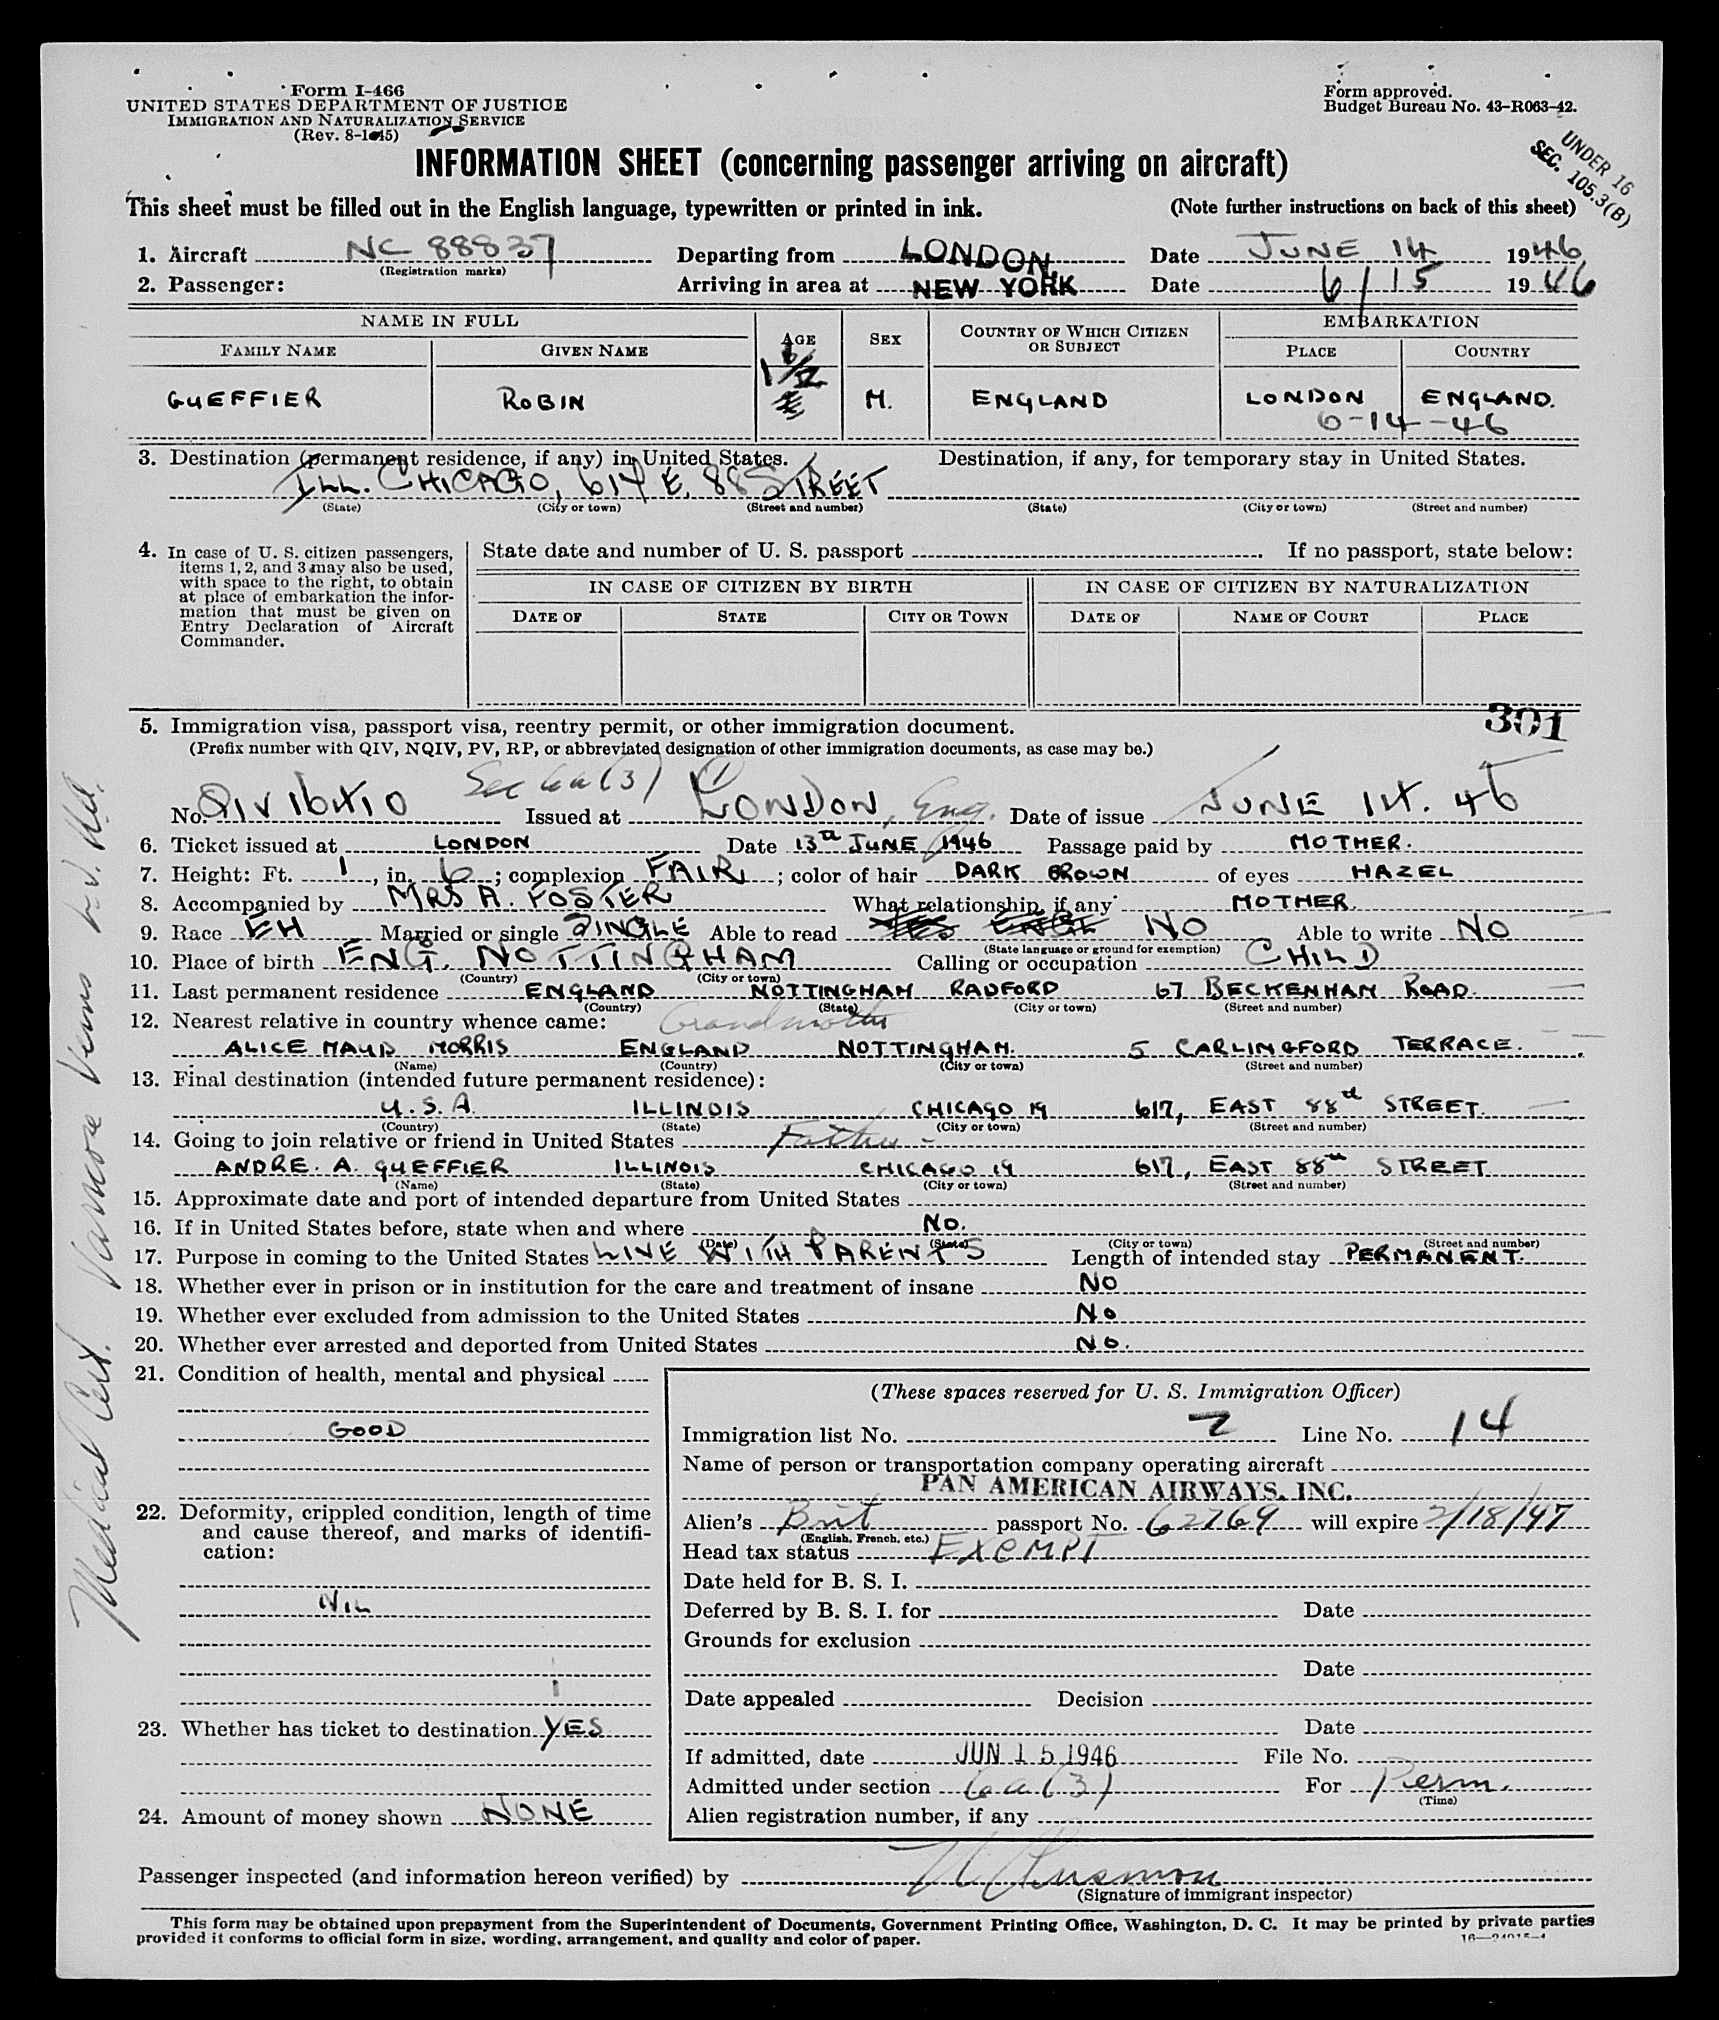 Form I-466
UNITED STATES DEPARTMENT OF JUSTICE
IMMIGRATION AND NATURALIZATION SERVICE
(Rev. 8-1-45)
Form approved.
Budget Bureau No. 43-R063-42.
UNDER 16
SEC. 105.3(B)
INFORMATION SHEET (concerning passenger arriving on aircraft)
This sheet must be filled out in the English language, typewritten or printed in ink. (Note further instructions on back of this sheet)
1. Aircraft NC 88837 Departing from LONDON. Date JUNE 14 1946
(Registration marks)
2. Passenger: Arriving in area at NEW YORK Date 6/15 1946
NAME IN FULL AGE SEX COUNTRY OF WHICH CITIZEN OR SUBJECT EMBARKATION
FAMILY NAME GIVEN NAME PLACE COUNTRY
GUEFFIER ROBIN M. ENGLAND LONDON ENGLAND.
6-14-46
3. Destination (permanent residence, if any) in United States. Destination, if any, for temporary stay in United States.
ILL. CHICAGO, 617 E. 88 STREET
(State) (City or town) (Street and number) (State) (City or town) (Street and number)
4. In case of U. S. citizen passengers, items 1, 2, and 3 may also be used, with space to the right, to obtain at place of embarkation the information that must be given on Entry Declaration of Aircraft Commander.
State date and number of U. S. passport . If no passport, state below:
IN CASE OF CITIZEN BY BIRTH IN CASE OF CITIZEN BY NATURALIZATION
DATE OF STATE CITY OR TOWN DATE OF NAME OF COURT PLACE
301
5. Immigration visa, passport visa, reentry permit, or other immigration document.
(Prefix number with QIV, NQIV, PV, RP, or abbreviated designation of other immigration documents, as case may be.)
Sec 6a(3)
No. QIV 16410 Issued at LONDON, Eng. Date of issue JUNE 14. 46
6. Ticket issued at LONDON Date 13th JUNE 1946 Passage paid by MOTHER.
7. Height: Ft. 1, in. 6; complexion FAIR; color of hair DARK BROWN of eyes HAZEL
8. Accompanied by MRS A. FOSTER What relationship, if any MOTHER.
9. Race EH Married or single SINGLE Able to read NO Able to write NO
(State language or ground for exemption)
10. Place of birth ENG. NOTTINGHAM Calling or occupation CHILD
(Country) (City or town)
11. Last permanent residence ENGLAND NOTTINGHAM RADFORD 67 BECKENHAM ROAD.
(Country) (State) (City or town) (Street and number)
12. Nearest relative in country whence came: Grandmother
ALICE MAUD MORRIS ENGLAND NOTTINGHAM. 5 CARLINGFORD TERRACE.
(Name) (Country) (City or town) (Street and number)
13. Final destination (intended future permanent residence):
U.S.A. ILLINOIS CHICAGO 19 617, EAST 88th STREET.
(Country) (State) (City or town) (Street and number)
14. Going to join relative or friend in United States Father -
ANDRE. A. GUEFFIER ILLINOIS CHICAGO 19 617, EAST 88th STREET
(Name) (State) (City or town) (Street and number)
15. Approximate date and port of intended departure from United States
16. If in United States before, state when and where NO.
(Date) (State) (City or town) (Street and number)
17. Purpose in coming to the United States LIVE WITH PARENTS Length of intended stay PERMANENT.
18. Whether ever in prison or in institution for the care and treatment of insane NO
19. Whether ever excluded from admission to the United States NO
20. Whether ever arrested and deported from United States NO.
21. Condition of health, mental and physical
GOOD
22. Deformity, crippled condition, length of time and cause thereof, and marks of identification:
NIL
23. Whether has ticket to destination YES
24. Amount of money shown NONE
(These spaces reserved for U. S. Immigration Officer)
Immigration list No. 2 Line No. 14
Name of person or transportation company operating aircraft
PAN AMERICAN AIRWAYS, INC.
Alien's Brit passport No. 62769 will expire 2/18/47
(English, French, etc.)
Head tax status EXEMPT
Date held for B. S. I.
Deferred by B. S. I. for Date
Grounds for exclusion
Date
Date appealed Decision
Date
If admitted, date JUN 15 1946 File No.
Admitted under section 6a(3) For Perm.
(Time)
Alien registration number, if any
Passenger inspected (and information hereon verified) by
(Signature of immigrant inspector)
This form may be obtained upon prepayment from the Superintendent of Documents, Government Printing Office, Washington, D. C. It may be printed by private parties
provided it conforms to official form in size, wording, arrangement, and quality and color of paper.
Medical Cert.